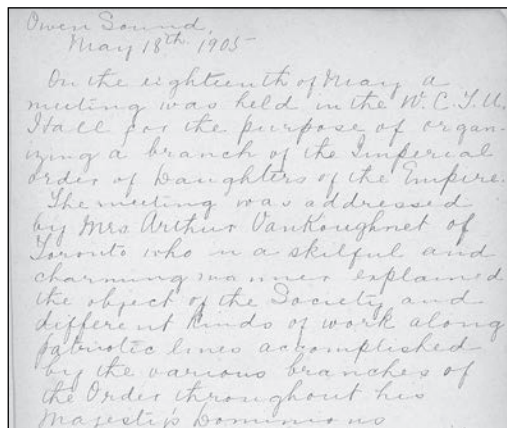 Owen Sound,
May 18th. 1905
On the eighteenth of May a
meeting was held in the W.C.T.U.
Hall for the purpose of organ-
izing a branch of the Imperial
order of Daughters of the Empire.
The meeting was addressed
by Mrs Arthur VanKoughnet of
Toronto who in a skilful and
charming manner explained
the object of the Society and
different kinds of work along
patriotic lines accomplished
by the various branches of
the Order throughout his
Majesty's Dominions